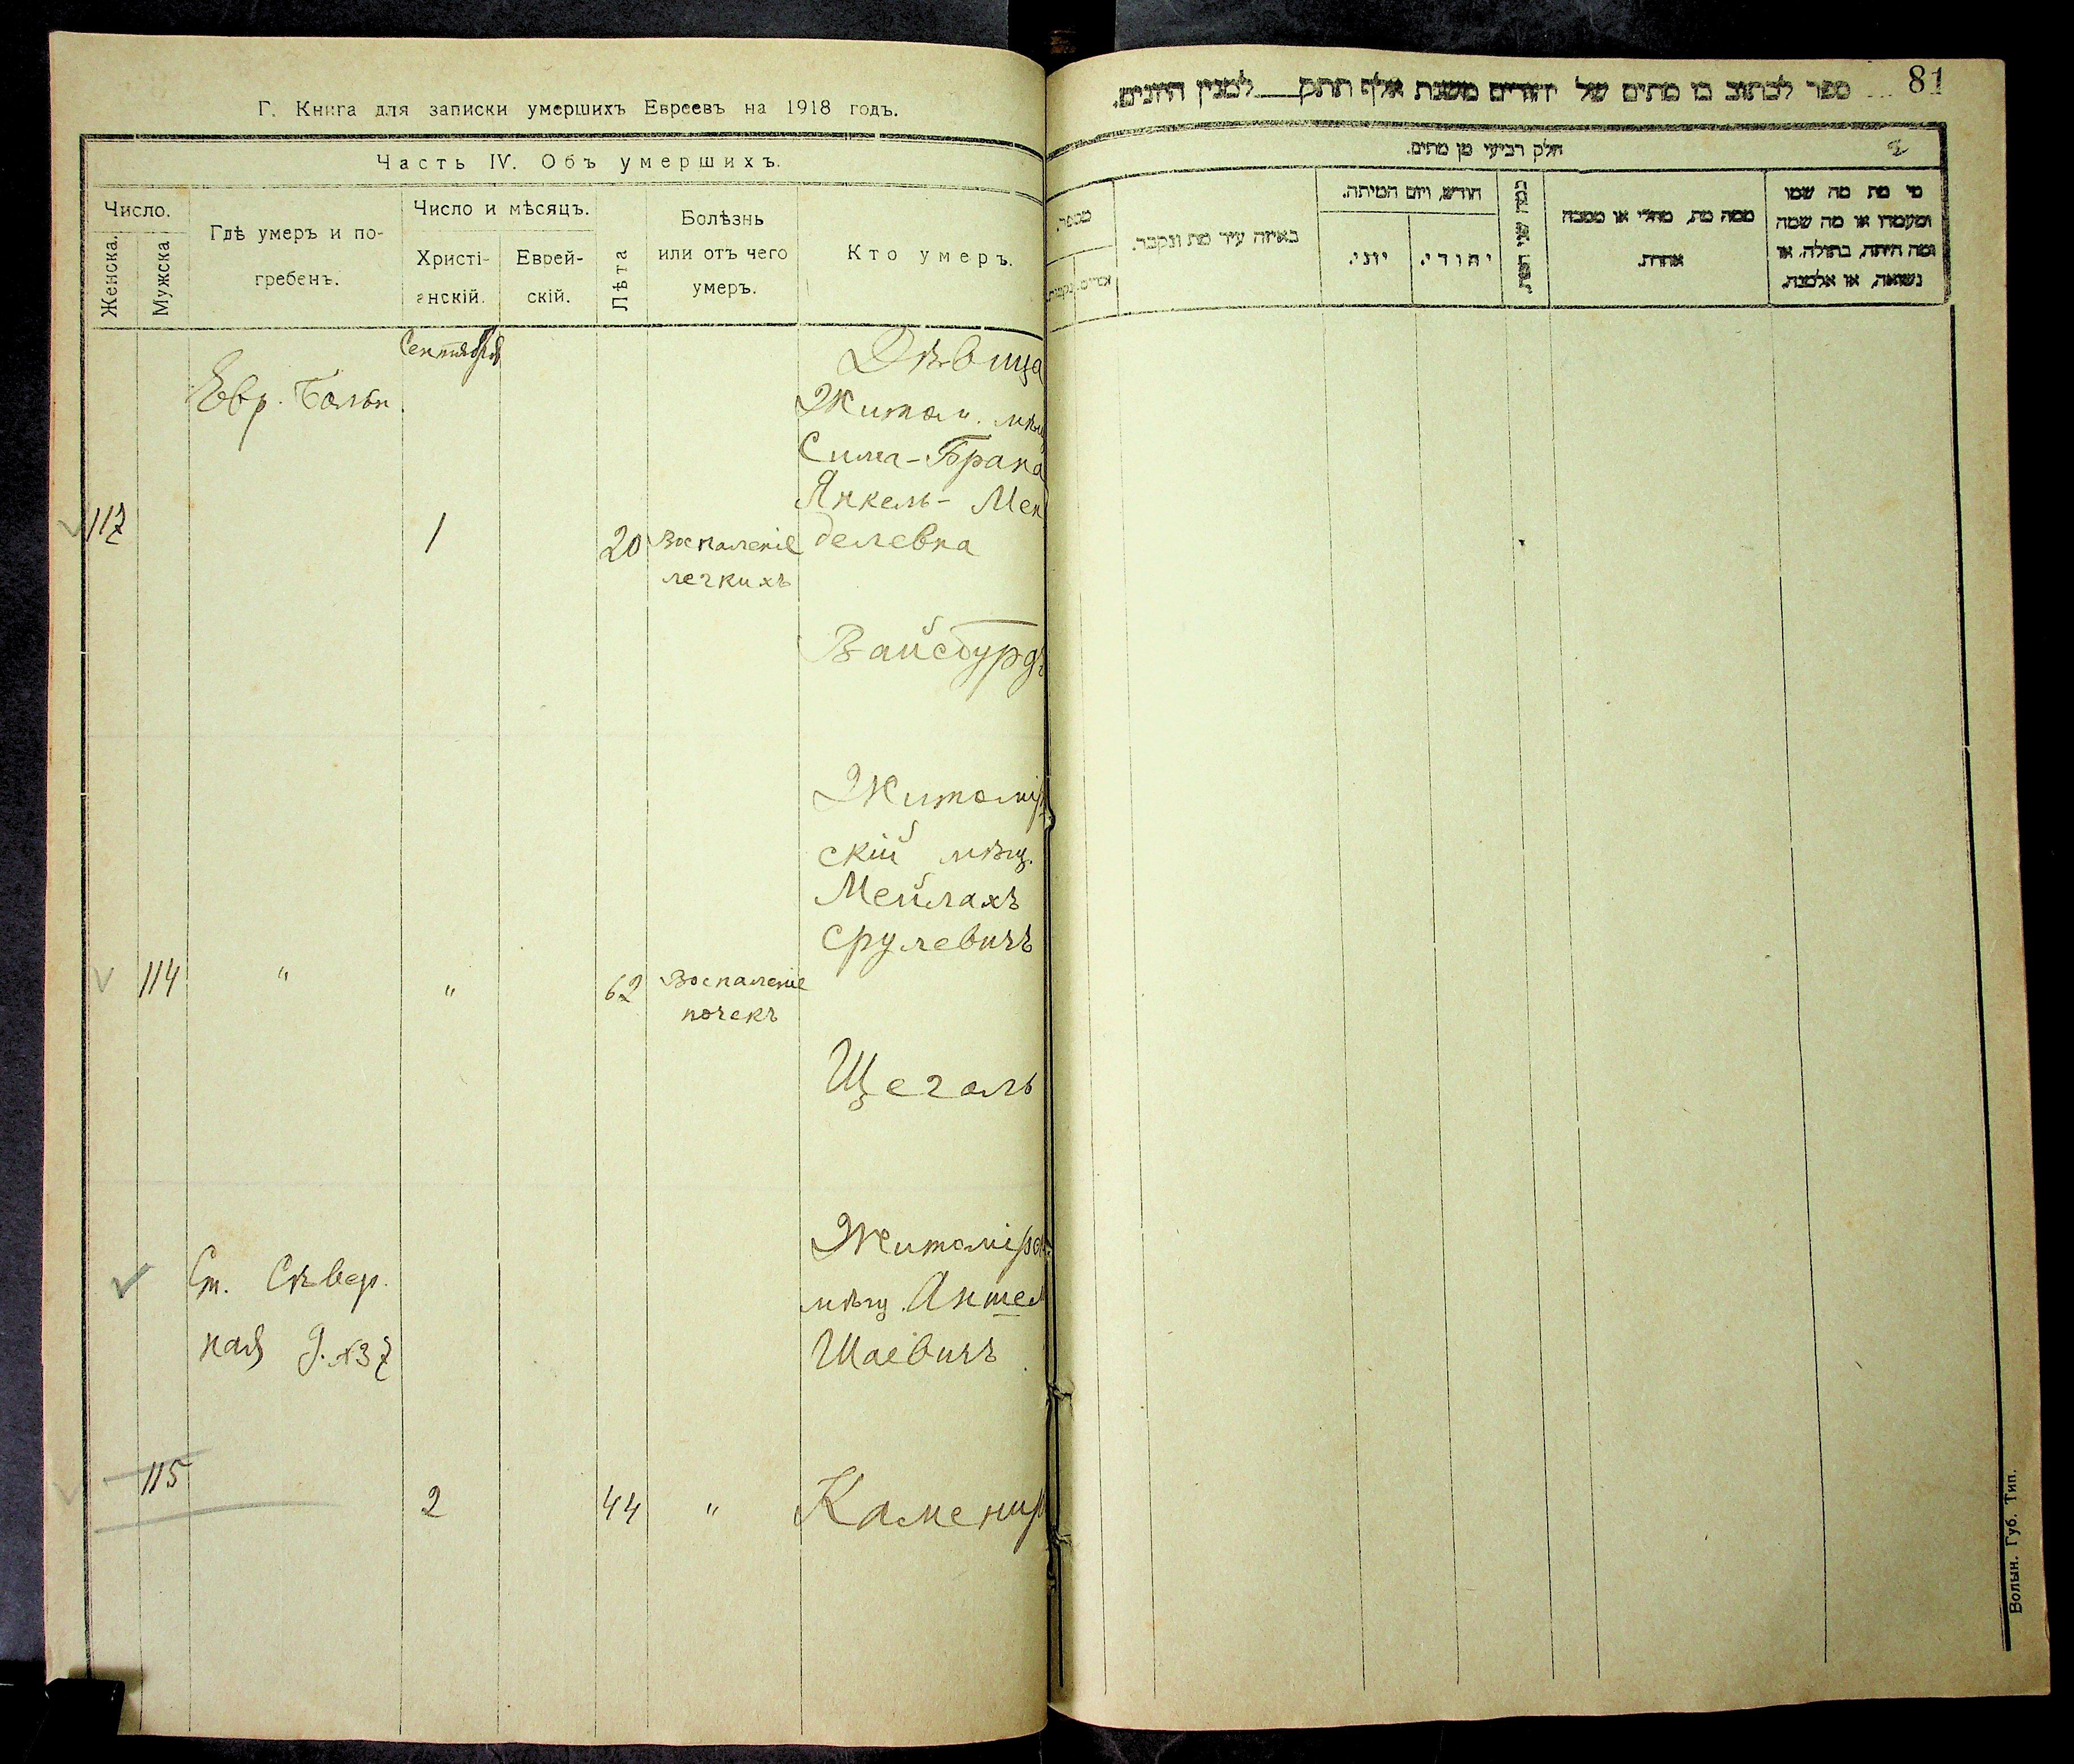 Г. Книга для записки умершихъ Евреевъ на 1918 годъ.
Часть IV. Объ умершихъ.
Число.
Женска.
Мужска
Гдѣ умеръ и по-
гребенъ.
Число и мѣсяцъ.
Христі-
анскій.
Еврей-
скій.
Лѣта
Болѣзнь
или отъ чего
умеръ.
Кто умеръ.
Сентября
Евр. Больн.
117
1
20
Воспаленіе
легкихъ
Дѣвица
Житом. мѣщ
Сима-Брана
Янкель-Мен
делевна
Вайсбурдъ
114
"
"
62
Воспаленіе
почекъ
Житомір
скій мѣщ.
Мейлахъ
Срулевичъ
Щеголь
Ст. Сѣвер.
ная д. № 37
115
2
44
"
Житомірск
мѣщ. Аншел
Шаевичъ
Каменир
81
ספר לכתוב בו מתים של יהודים משנת אלף תתק למנין היונים.
חלק רביעי מן מתים.
2
מי מת מה שמו
ומעמדו או מה שמה
ומה היתה, בתולה, או
נשואה, או אלמנה.
ממה מת, מחלי או מסבה
אחרת.
חודש, ויום המיתה.
יהודי.
יוני.
באיזה עיר מת ונקבר.
מספר.
Волын. Губ. Тип.